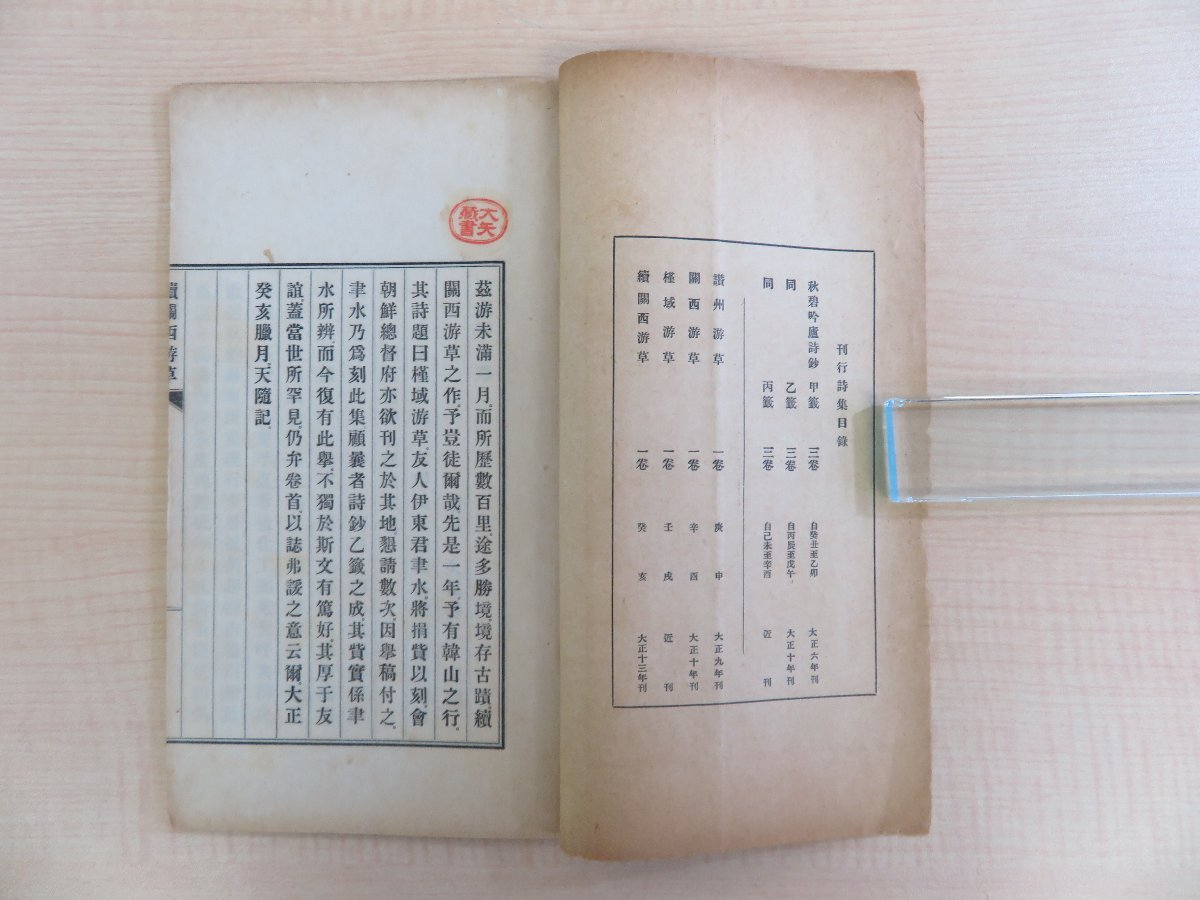 刊行詩集目錄
秋碧吟廬詩鈔 甲籤 三卷 自癸丑至乙卯 大正六年刊
同 乙籤 三卷 自丙辰至戊午 大正十年刊
同 丙籤 三卷 自己未至辛酉 近刊
讚州游草 一卷 庚申 大正九年刊
關西游草 一卷 辛酉 大正十年刊
槿域游草 一卷 壬戌 近刊
續關西游草 一卷 癸亥 大正十三年刊
大矢藏書
茲游未滿一月。而所歷數百里。途多勝境。境存古蹟。續
關西游草之作予豈徒爾哉先是一年。予有韓山之行。
其詩題曰槿域游草。友人伊東君聿水。將捐貲以刻。會
朝鮮總督府亦欲刊之於其地。懇請數次。因舉稿付之。
聿水乃爲刻此集顧曩者詩鈔乙籤之成。其貲實係聿
水所辨而今復有此擧。不獨於斯文有篤好。其厚于友
誼蓋當世所罕見。仍弁卷首。以誌弗諼之意云爾。大正
癸亥臘月。天隨記。
續關西游草